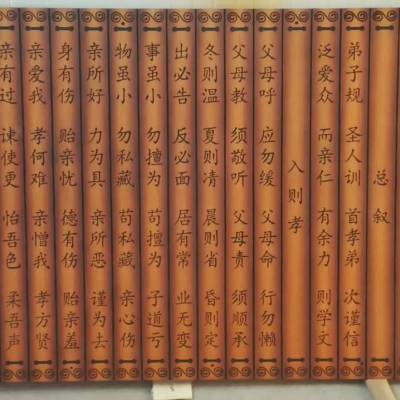 总叙
弟子规 圣人训 首孝弟 次谨信
泛爱众 而亲仁 有余力 则学文
入则孝
父母呼 应勿缓 父母命 行勿懒
父母教 须敬听 父母责 须顺承
冬则温 夏则凊 晨则省 昏则定
出必告 反必面 居有常 业无变
事虽小 勿擅为 苟擅为 子道亏
物虽小 勿私藏 苟私藏 亲心伤
亲所好 力为具 亲所恶 谨为去
身有伤 贻亲忧 德有伤 贻亲羞
亲爱我 孝何难 亲憎我 孝方贤
亲有过 谏使更 怡吾色 柔吾声